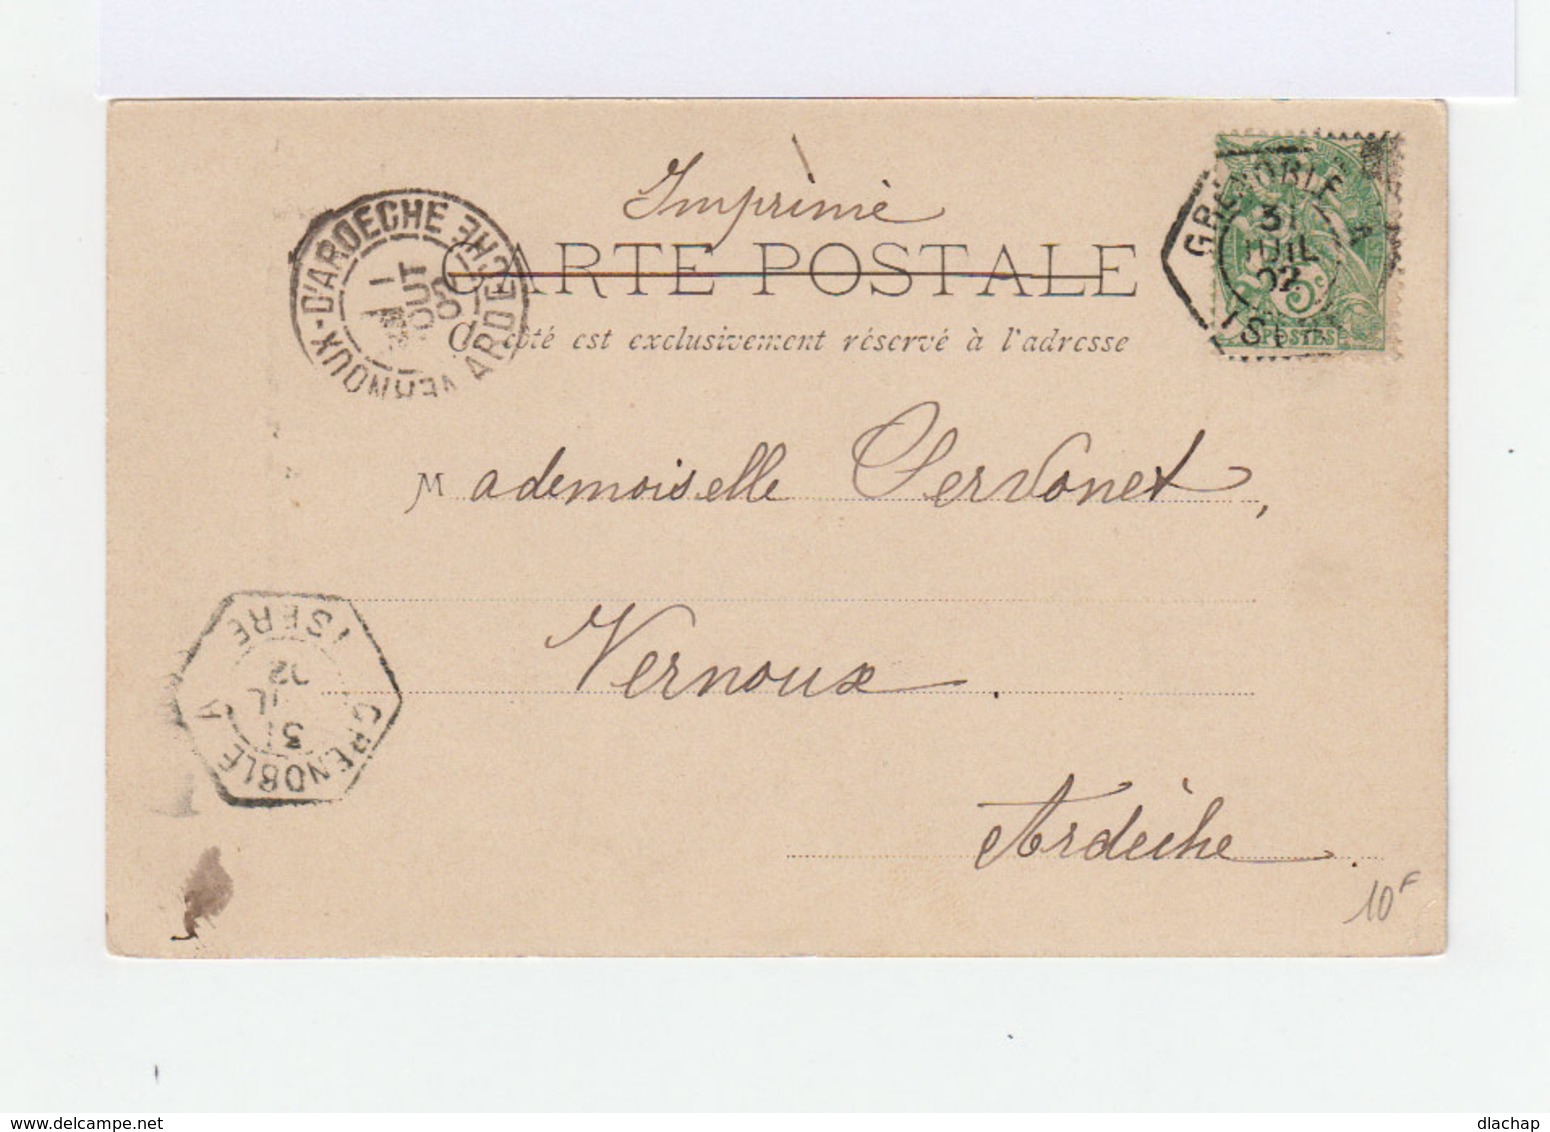 Imprimé
CARTE POSTALE
Ce côté est exclusivement réservé à l'adresse
VERNOUX-D'ARDECHE ARDECHE
1
AOUT
02
GRENOBLE A
31
JUIL
02
ISÈRE
5c
POSTES
Mademoiselle Servonet,
Vernoux.
Ardèche.
GRENOBLE A
31
JUIL
02
ISERE
10F
dlachap